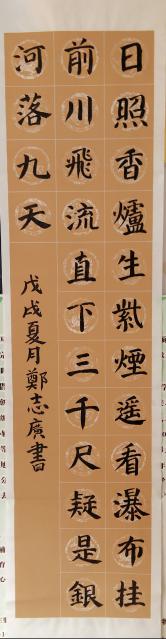 日照香爐生紫煙遥看瀑布挂
前川飛流直下三千尺疑是銀
河落九天
戊戌夏月鄭志廣書